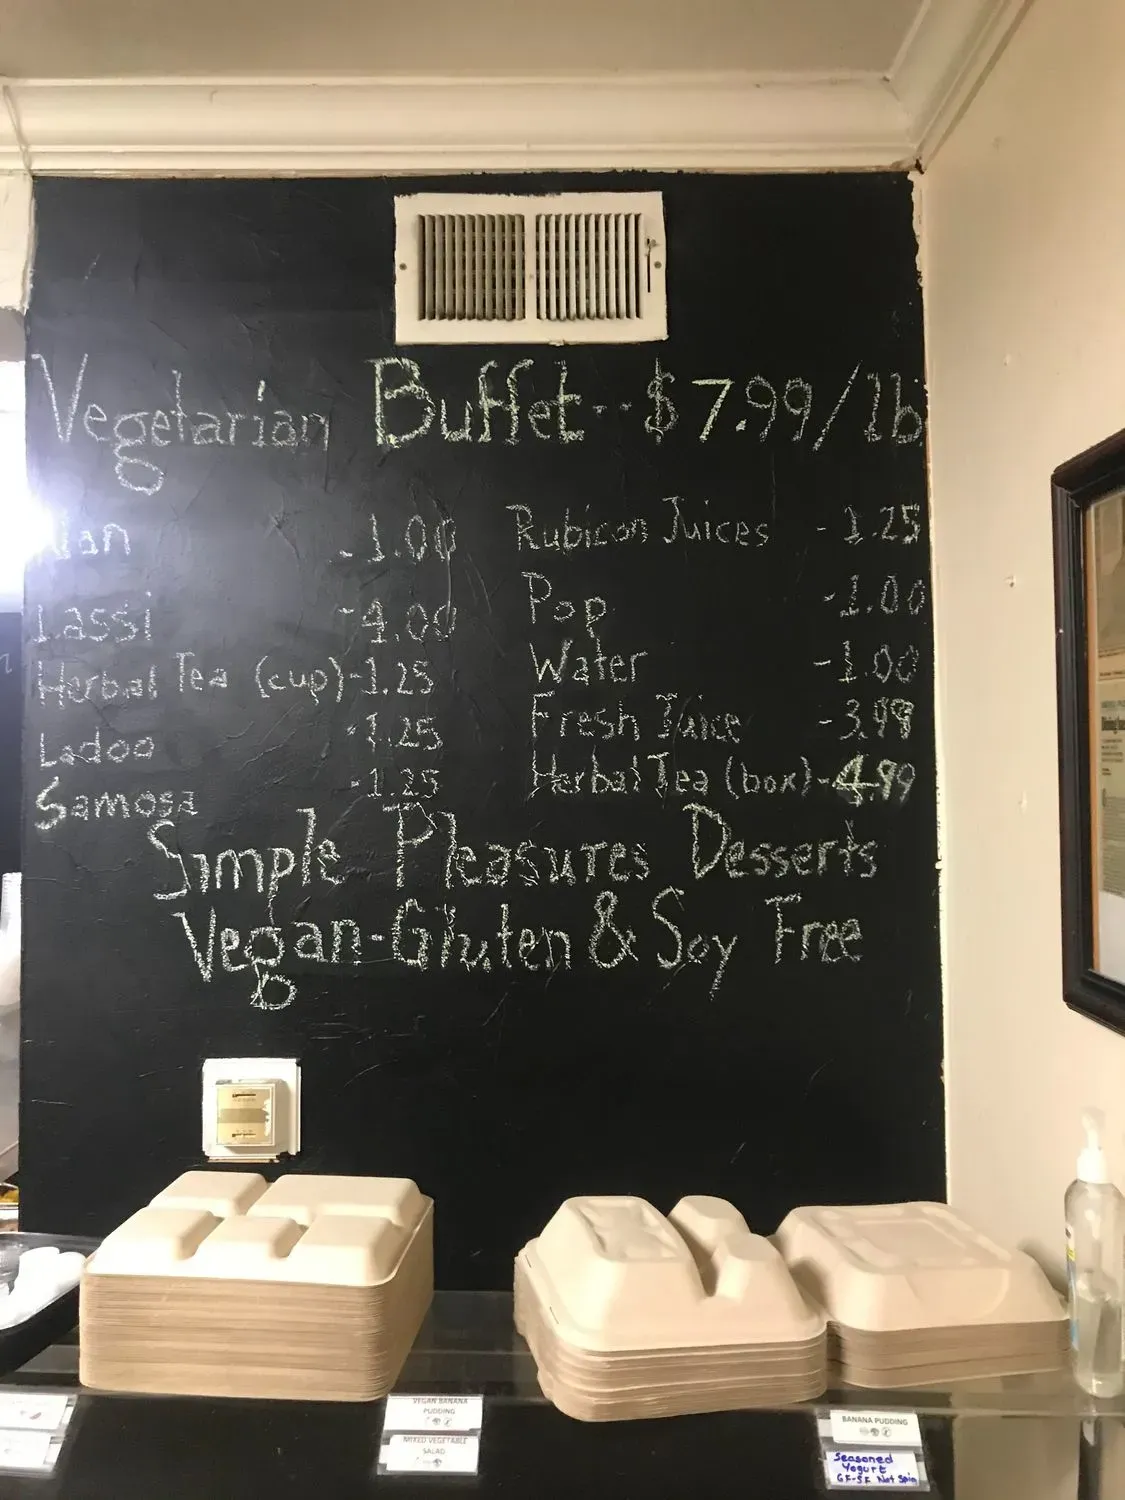 Vegetarian Buffet--$7.99/lb
-1.00
Lassi -4.00
Herbal Tea (cup)-1.25
Ladoo -1.25
Samosa -1.25
Rubicon Juices -1.25
Pop -1.00
Water -1.00
Fresh Juice -3.99
Herbal Tea (box)-4.99
Simple Pleasures Desserts
Vegan-Gluten & Soy Free
VEGAN BANANA
PUDDING
MIXED VEGETABLE
SALAD
BANANA PUDDING
Seasoned
Yogurt
GF-SF Not Spicy